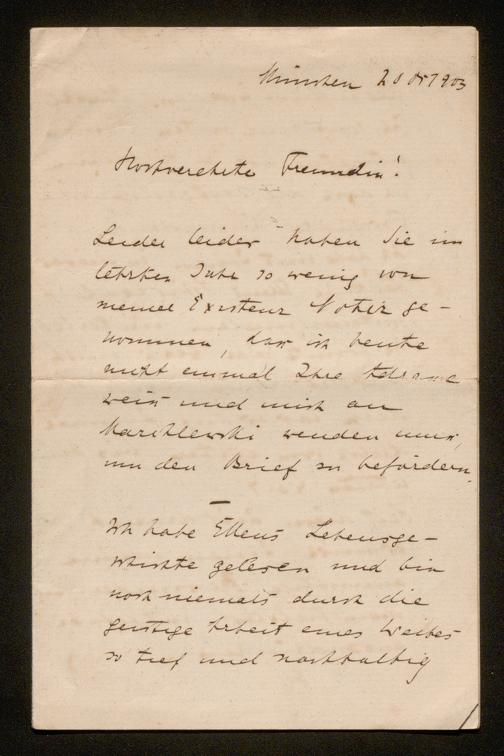 München 28 Okt 903
Hochverehrte Freundin!
Leider leider haben Sie im
letzten Jahr so wenig von
meiner Existenz Notiz ge-
nommen, dass ich heute
nicht einmal Ihre Adresse
weiss und mich an
Marchlewski wenden muss,
um den Brief zu befördern.
Ich habe Ellens Lebensge-
schichte gelesen und bin
noch niemals durch die
geistige Arbeit eines Weibes
so tief und nachhaltig